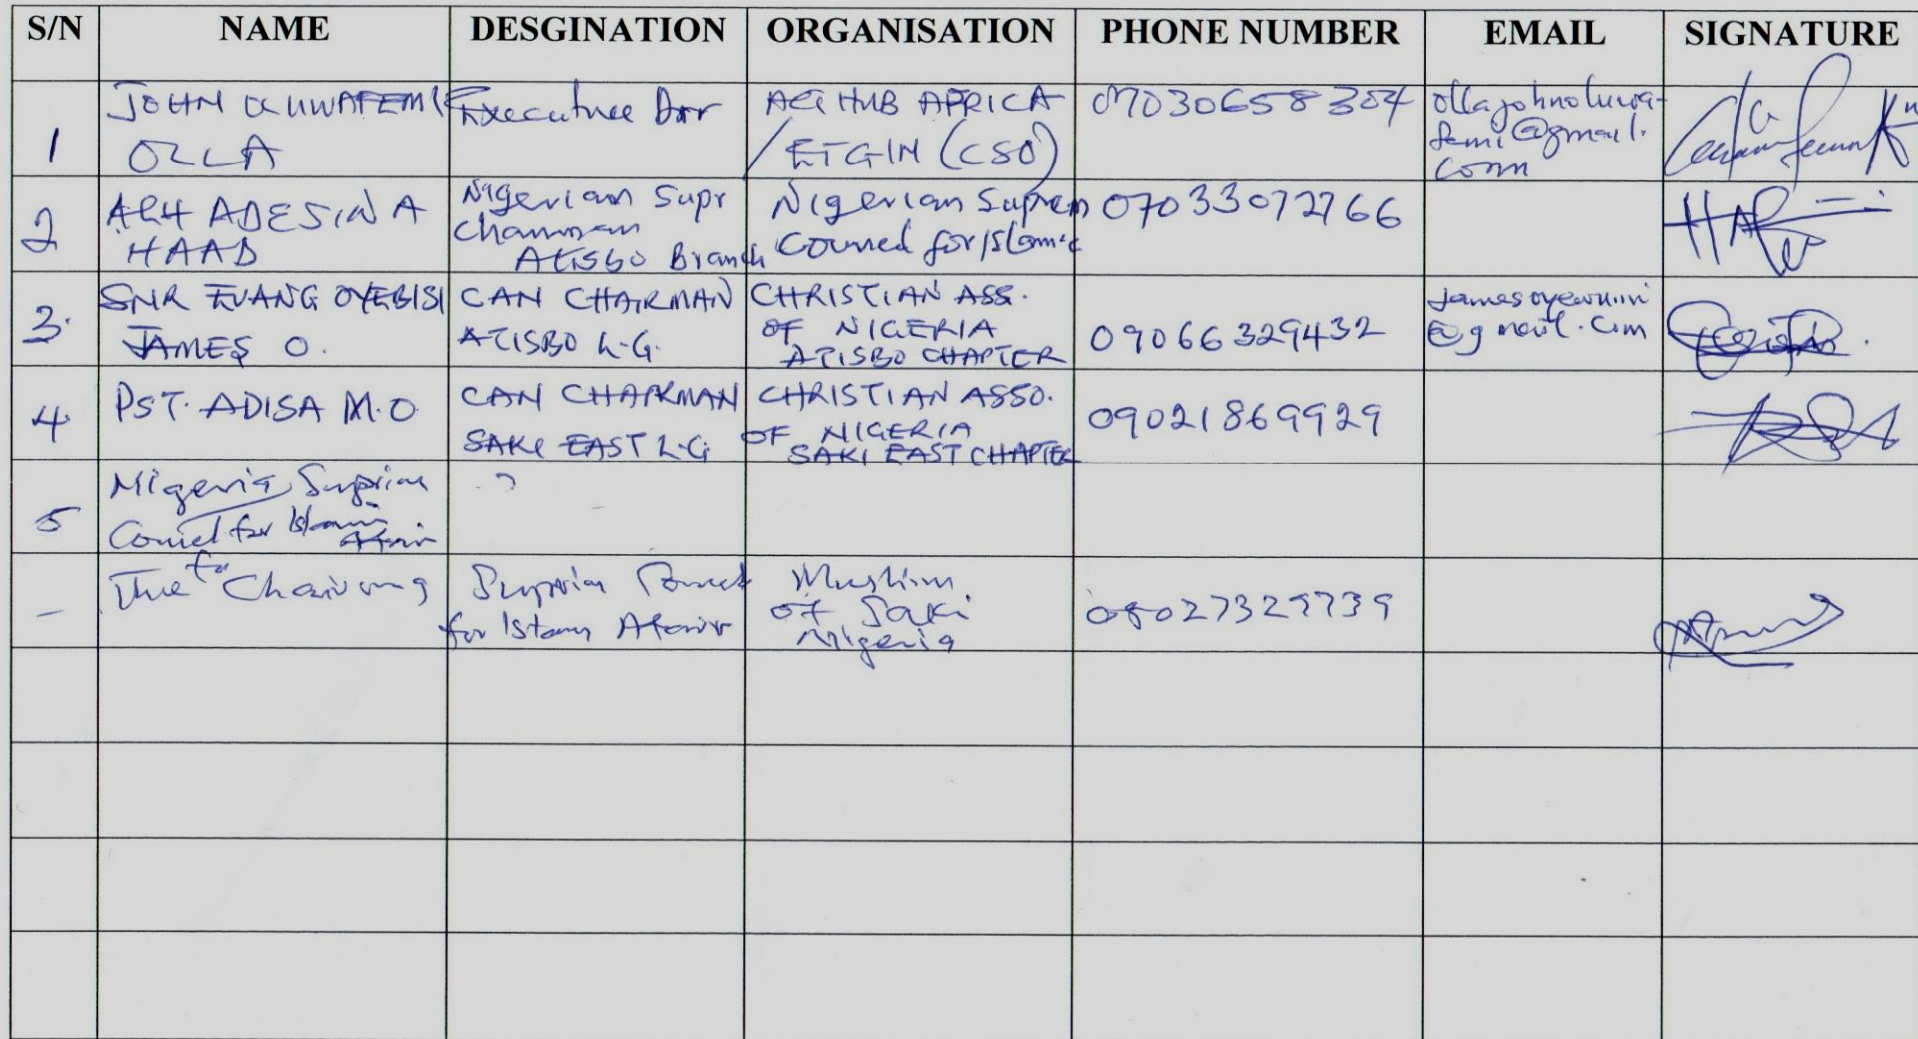 S/N NAME DESGINATION ORGANISATION PHONE NUMBER EMAIL SIGNATURE
1
JOHN OLUWAFEMI
OLLA
Executive Dir
AGG HUB AFRICA
/ETGIN (CSO)
07030658304
ollajohnoluwa-
femi@gmail.
com
2
ALH ADESINA
HAAD
Nigerian Supr
Chairman
Atisbo Branch
Nigerian Suprem
Council for Islamic
07033072766
3.
SNR EVANG OYEBISI
JAMES O.
CAN CHAIRMAN
ATISBO L.G.
CHRISTIAN ASS.
OF NIGERIA
ATISBO CHAPTER
09066329432
jamesoyewumi
@gmail.com
4.
PST. ADISA M.O
CAN CHAIRMAN
SAKI EAST L.G
CHRISTIAN ASSO.
OF NIGERIA
SAKI EAST CHAPTER
09021869929
5
Nigeria
for Islamic
?
-
The Chairman
for Islam
Muslim
of Saki
Nigeria
08027329739